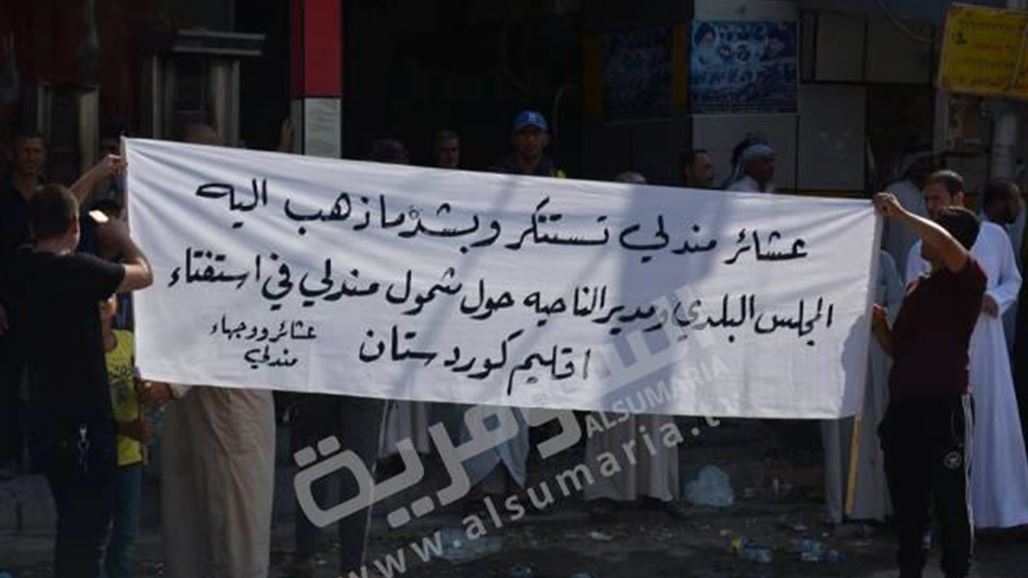 عشائر مندلي تستنكر وبشده ما ذهب اليه
المجلس البلدي ومدير الناحيه حول شمول مندلي في استفتاء
اقليم كوردستان
عشائر ووجهاء
مندلي
السومرية
ALSUMARIA
www.alsumaria.tv